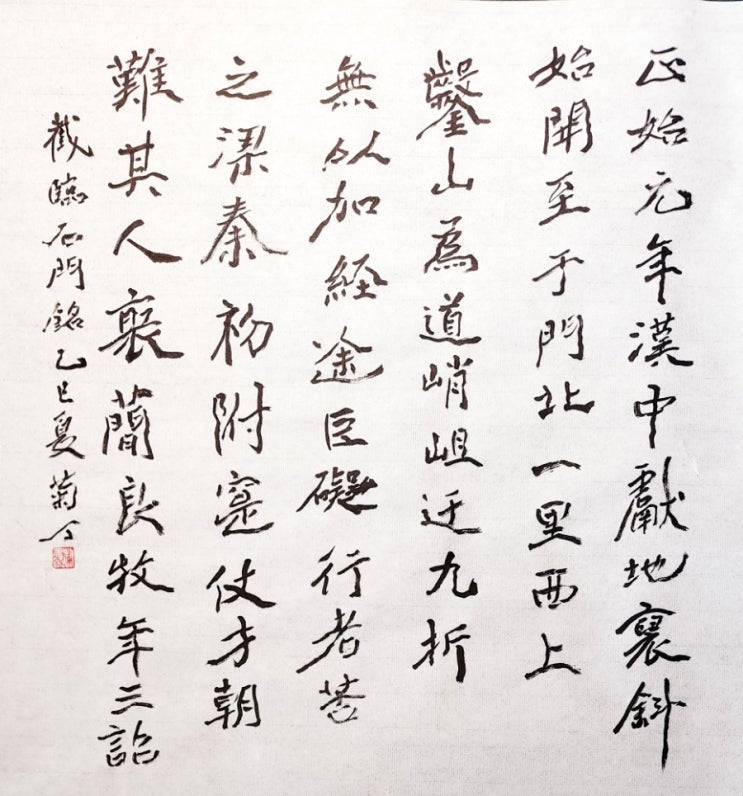 正始元年漢中獻地褒斜
始開至于門北一里西上
鑿山爲道峭岨迂九折
無以加経途巨礙行者苦
之梁秦初附寔仗才朝
難其人褒簡良牧年三詔
截臨石門銘乙巳夏菊